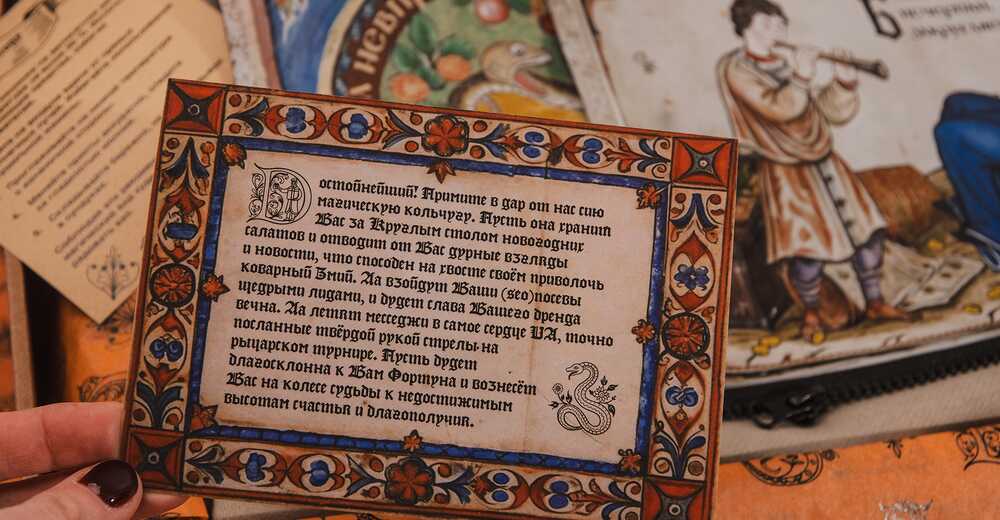 НЕВ
Достойнейший! Примите в дар от нас сию
магическую кольчугу. Пусть она хранит
Вас за Круглым столом новогодних
салатов и отводит от Вас дурные взгляды
и новости, что способен на хвосте своём приволочь
коварный Змий. Да взойдут Ваши (seo)посевы
щедрыми лидами, и будет слава Вашего бренда
вечна. Да летят месседжи в самое сердце ЦА, точно
посланные твёрдой рукой стрелы на
рыцарском турнире. Пусть будет
благосклонна к Вам Фортуна и вознесёт
Вас на колесе судьбы к недостижимым
высотам счастья и благополучия.